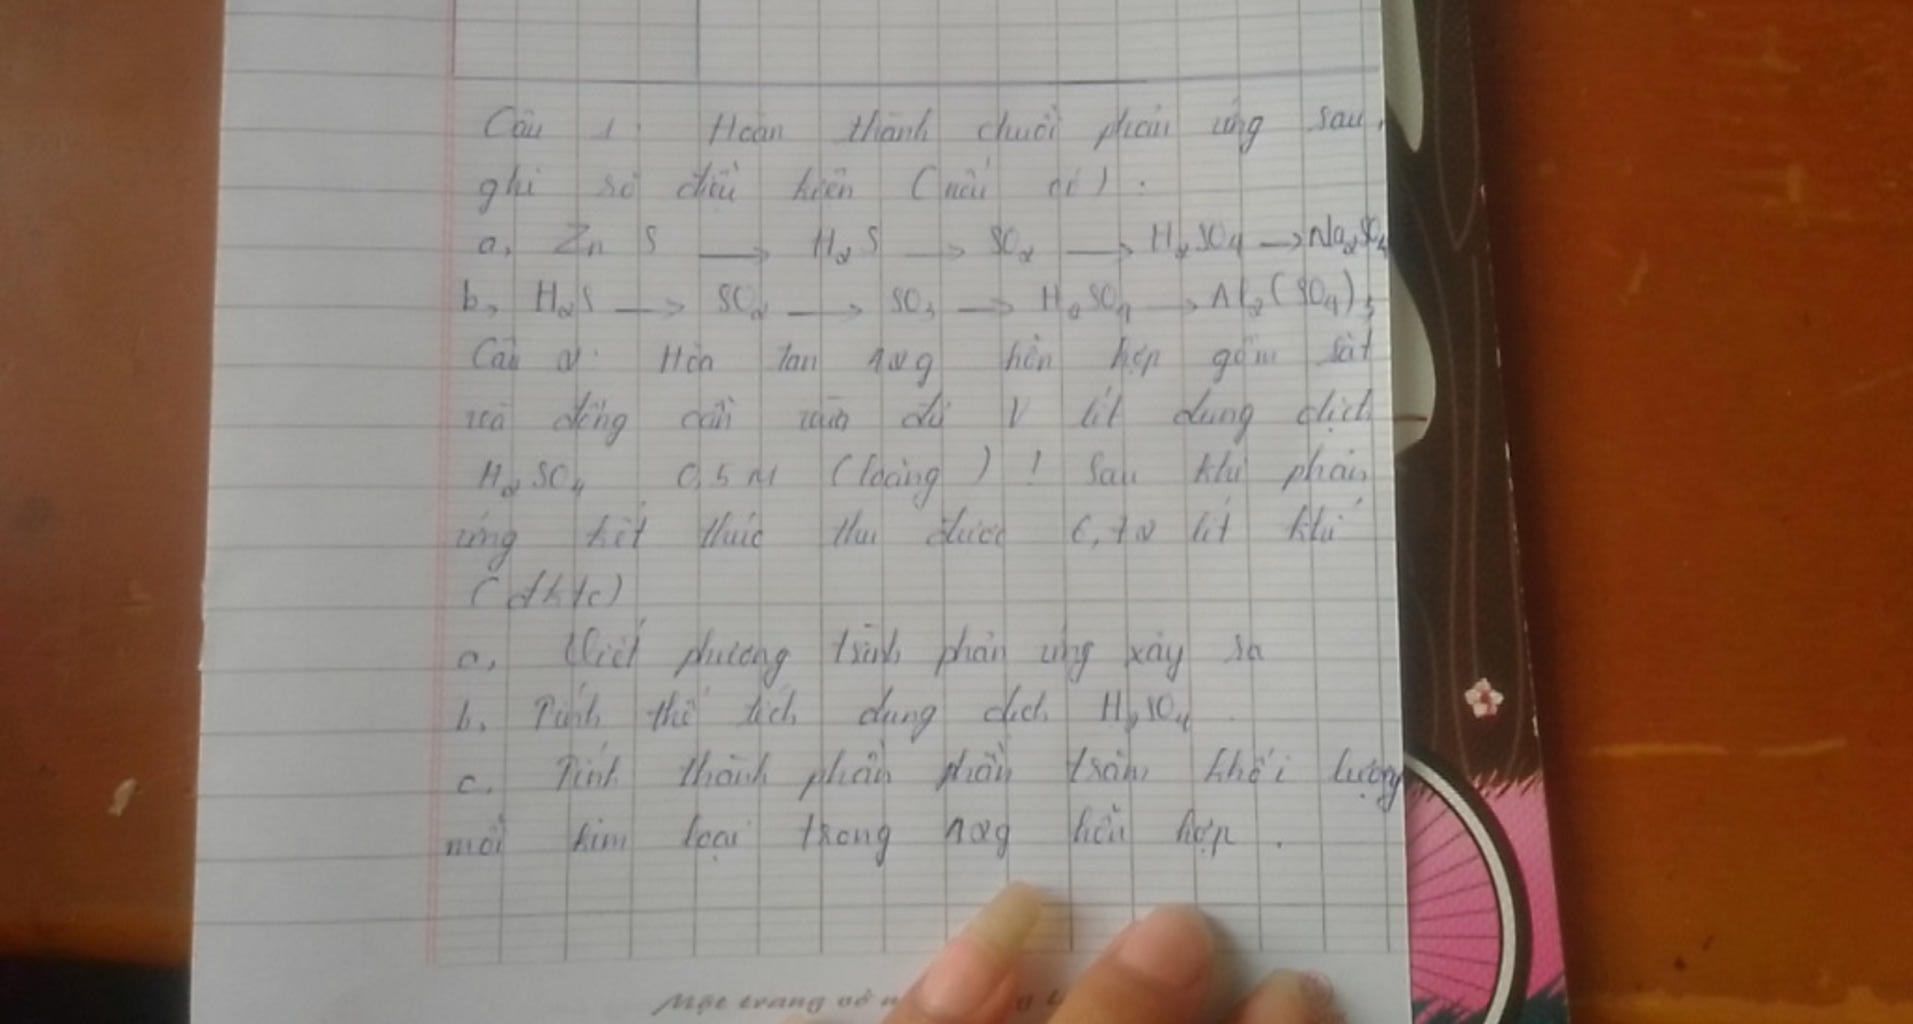 Câu 1: Hoàn thành chuỗi phản ứng sau,
ghi rõ điều kiện (nếu có).
a, ZnS → H₂S → SO₂ → H₂SO₄ → Na₂SO₄
b, H₂S → SO₂ → SO₃ → H₂SO₄ → Al₂(SO₄)₃
Câu 2: Hòa tan 12g hỗn hợp gồm sắt
và đồng cần vừa đủ V lít dung dịch
H₂SO₄ 0,5M (loãng)! Sau khi phản
ứng kết thúc thu được 6,72 lít khí
(đktc)
a, Viết phương trình phản ứng xảy ra
b, Tính thể tích dung dịch H₂SO₄.
c. Tính thành phần phần trăm khối lượng
mỗi kim loại trong 12g hỗn hợp.
Một trang vở